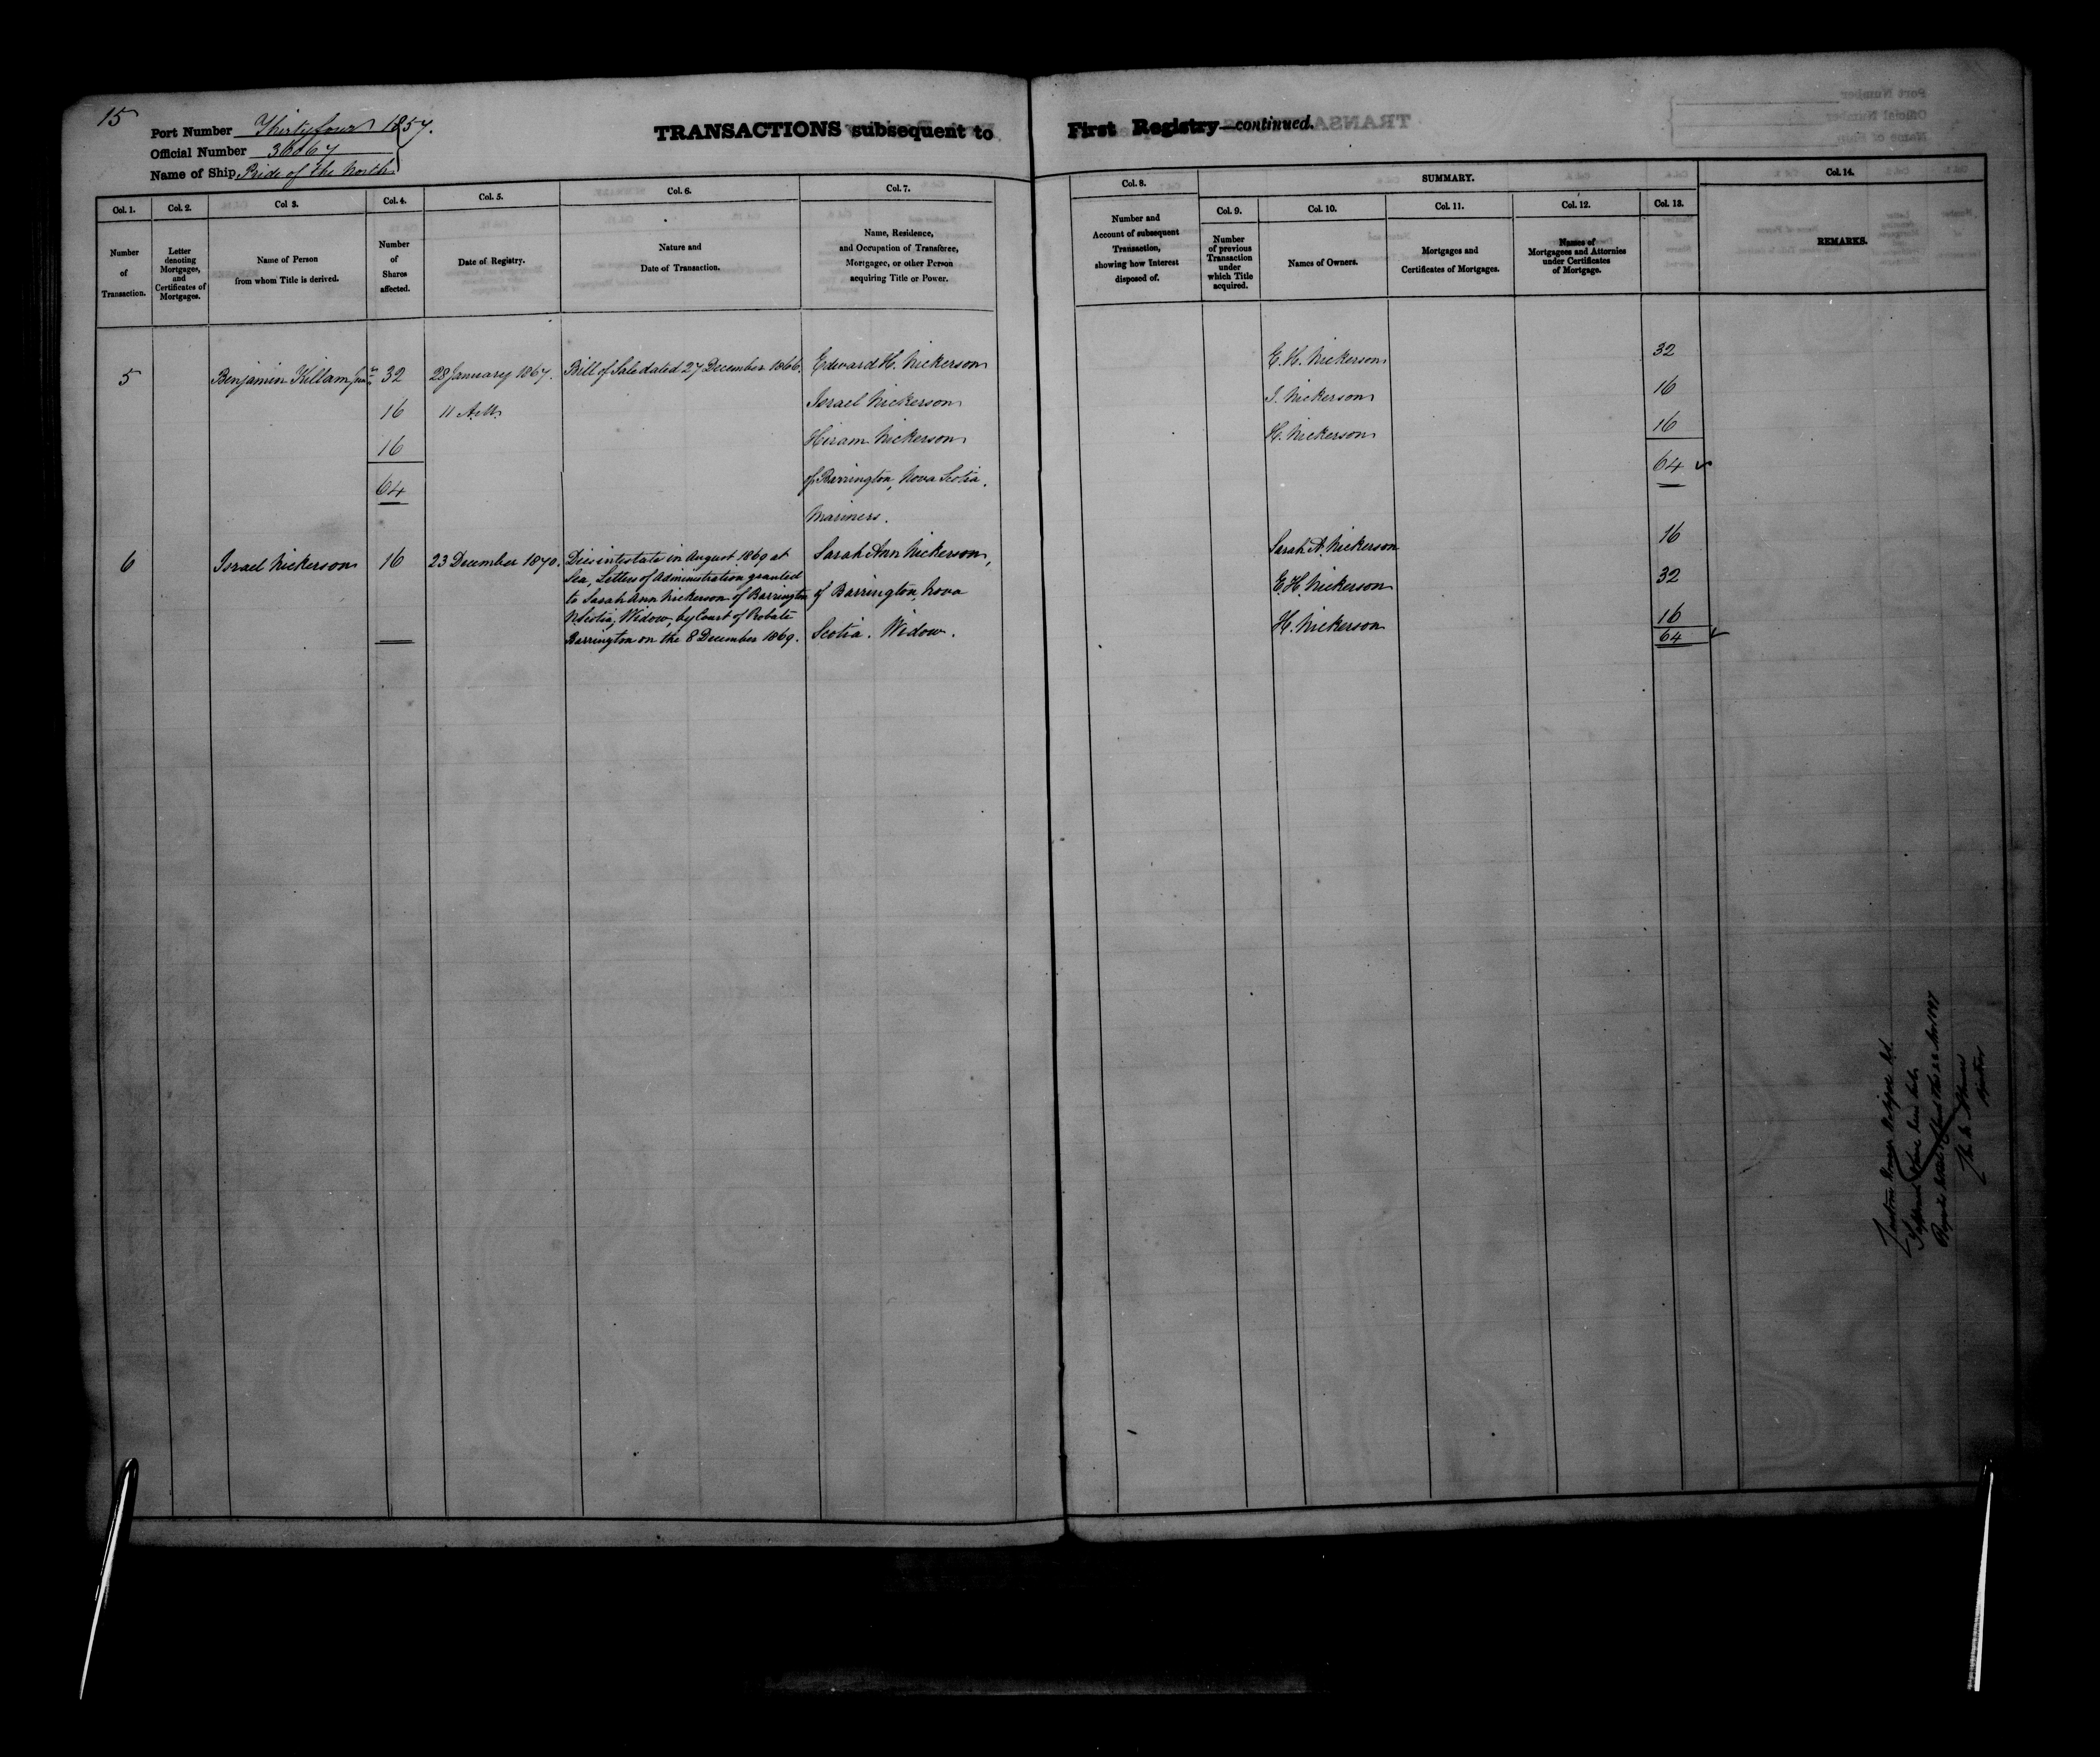 15
Port Number Thirty four 1857.
Official Number 36067
Name of Ship Pride of the North
TRANSACTIONS subsequent to First Registry—continued.
Col. 1.
Number of Transaction.
Col. 2.
Letter denoting Mortgages, and Certificates of Mortgages.
Col 3.
Name of Person from whom Title is derived.
Col. 4.
Number of Shares affected.
Col. 5.
Date of Registry.
Col. 6.
Nature and Date of Transaction.
Col. 7.
Name, Residence, and Occupation of Transferee, Mortgagee, or other Person acquiring Title or Power.
Col. 8.
Number and Account of subsequent Transaction, showing how Interest disposed of.
SUMMARY.
Col. 9.
Number of previous Transaction under which Title acquired.
Col. 10.
Names of Owners.
Col. 11.
Mortgages and Certificates of Mortgages.
Col. 12.
Names of Mortgagees and Attornies under Certificates of Mortgage.
Col. 13.
Col. 14.
REMARKS.
5 Benjamin Killam junr 32 28 January 1867. Bill of Sale dated 27 December 1866. Edward H. Nickerson E. H. Nickerson 32
16 11 A.M. Israel Nickerson I. Nickerson 16
16 Hiram Nickerson H. Nickerson 16
64 of Barrington, Nova Scotia. 64
Mariners.
6 Israel Nickerson 16 23 December 1870. Dies intestate in August 1869 at Sarah Ann Nickerson, Sarah A. Nickerson 16
Sea, Letters of Administration granted
to Sarah Ann Nickerson of Barrington of Barrington, Nova E. H. Nickerson 32
N. Scotia, Widow, by Court of Probate
Barrington on the 8 December 1869. Scotia. Widow. H. Nickerson 16
64